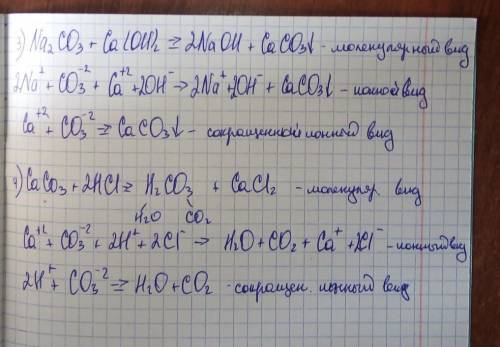 3) Na₂CO₃ + Ca(OH)₂ ⇄ 2NaOH + CaCO₃↓ - молекулярный вид
2Na⁺ + CO₃⁻² + Ca⁺² + 2OH⁻ → 2Na⁺ + 2OH⁻ + CaCO₃↓ - ионной вид
Ca⁺² + CO₃⁻² ⇄ CaCO₃↓ - сокращенный ионный вид
4) CaCO₃ + 2HCl ⇄ H₂CO₃ + CaCl₂ - молекуляр. вид
H₂O CO₂
Ca⁺² + CO₃⁻² + 2H⁺ + 2Cl⁻ → H₂O + CO₂ + Ca⁺ + 2Cl⁻ - ионный вид
2H⁺ + CO₃⁻² ⇄ H₂O + CO₂ - сокращен. ионный вид